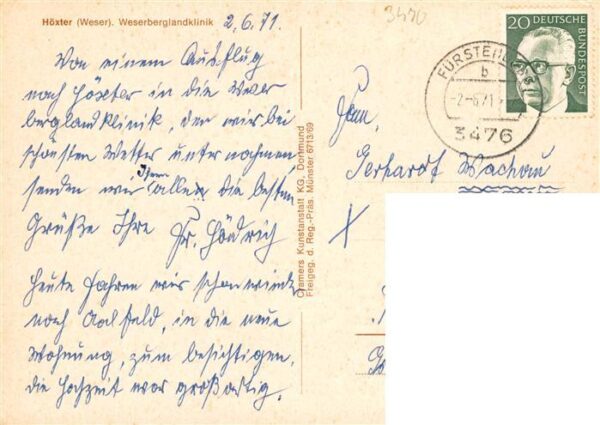 Höxter (Weser). Weserberglandklinik
2.6.71.
Von einem Ausflug
nach Höxter in die Weser
berglandklinik, den wir bei
schönsten Wetter unternahmen,
senden wir Ihnen allen die besten
Grüße Ihre Fr. Hödrich
Heute fahren wir schon wieder
nach Aalfeld, in die neue
Wohnung, zum besichtigen,
die Hochzeit war großartig.
Cramers Kunstanstalt KG, Dortmund
Freigeg. d. Reg.-Präs. Münster 6713/69
3470
20 DEUTSCHE
BUNDESPOST
b
-2.-6.71.-
3476
Gerhardt Wachau